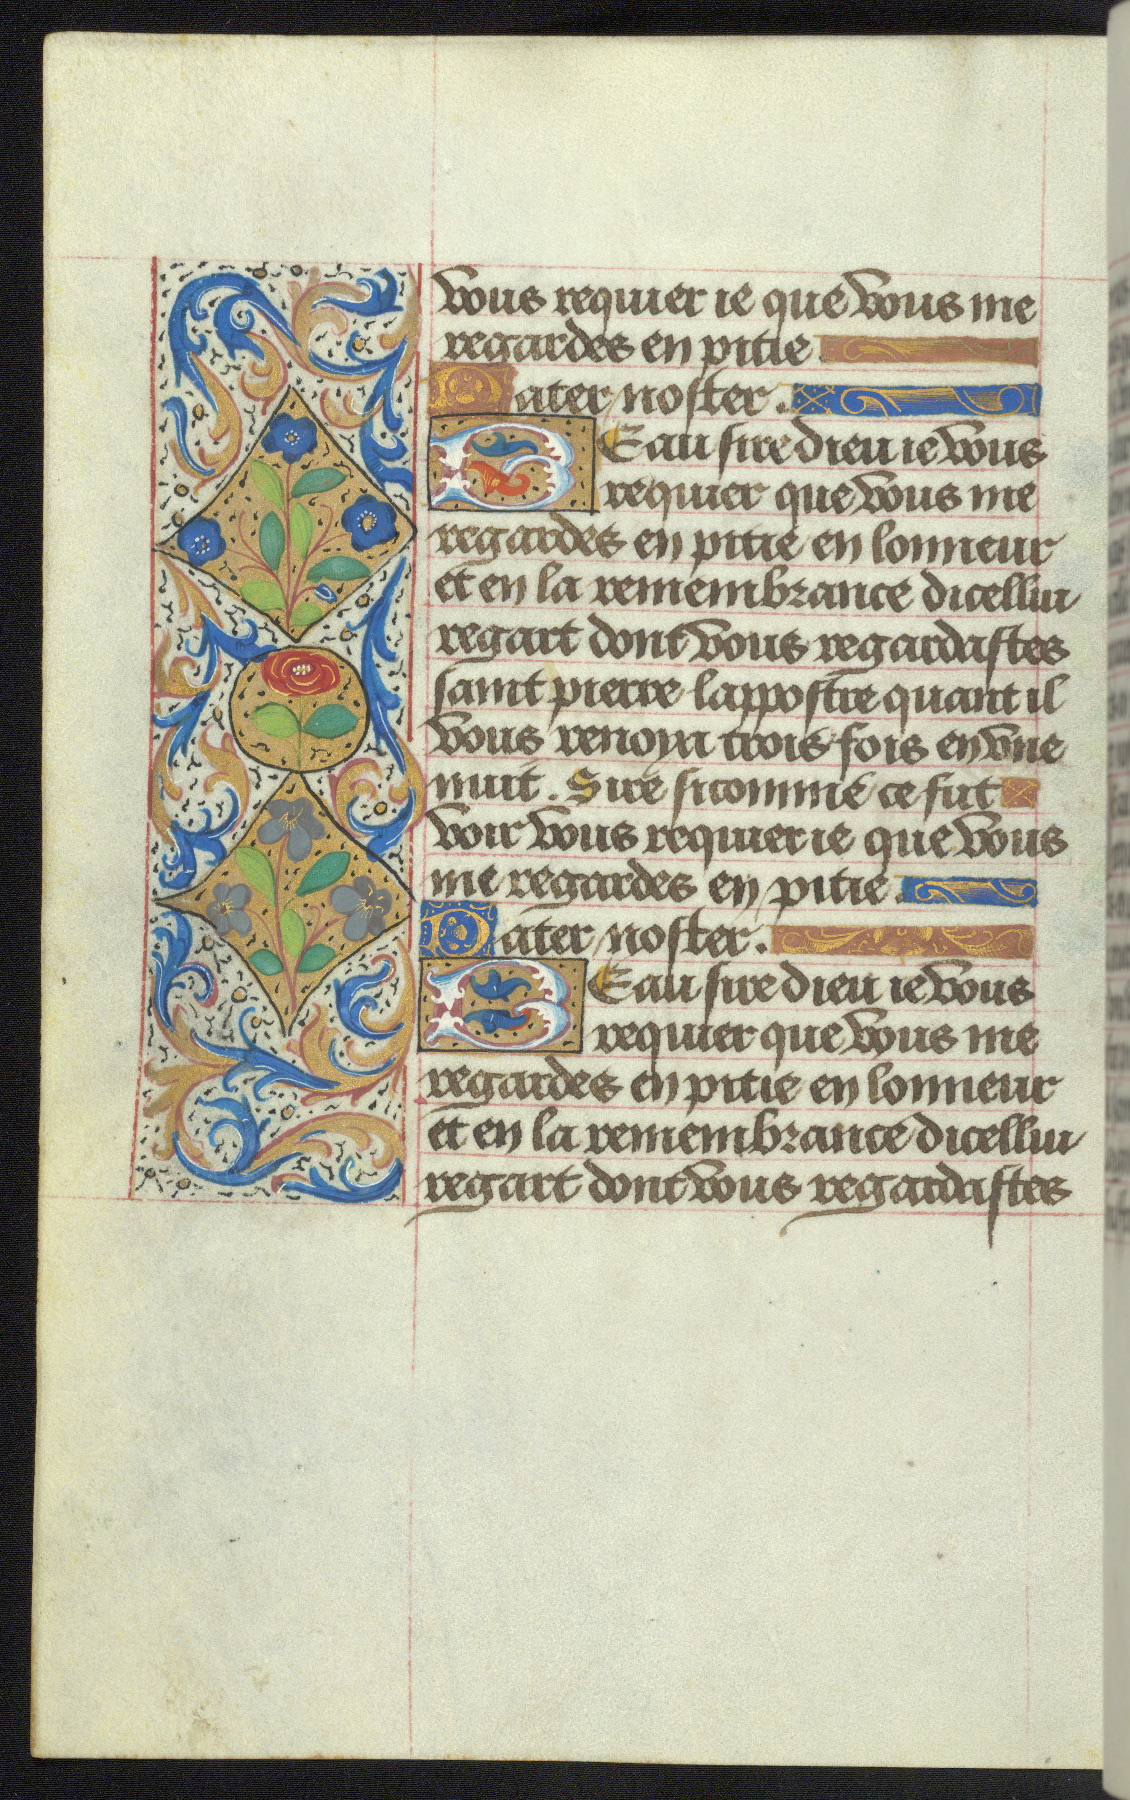 vous requier ie que vous me
regardes en pitie
Pater noster.
BEau sire dieu ie vous
requier que vous me
regardes en pitie en lonneur
et en la remembrance dicellui
regart dont vous regardastes
saint pierre lappostre quant il
vous renoya trois fois en vne
nuit. Sire sicomme ce fut
voir vous requier ie que vous
me regardes en pitie.
Pater noster.
BEau sire dieu ie vous
requier que vous me
regardes en pitie en lonneur
et en la remembrance dicellui
regart dont vous regardastes